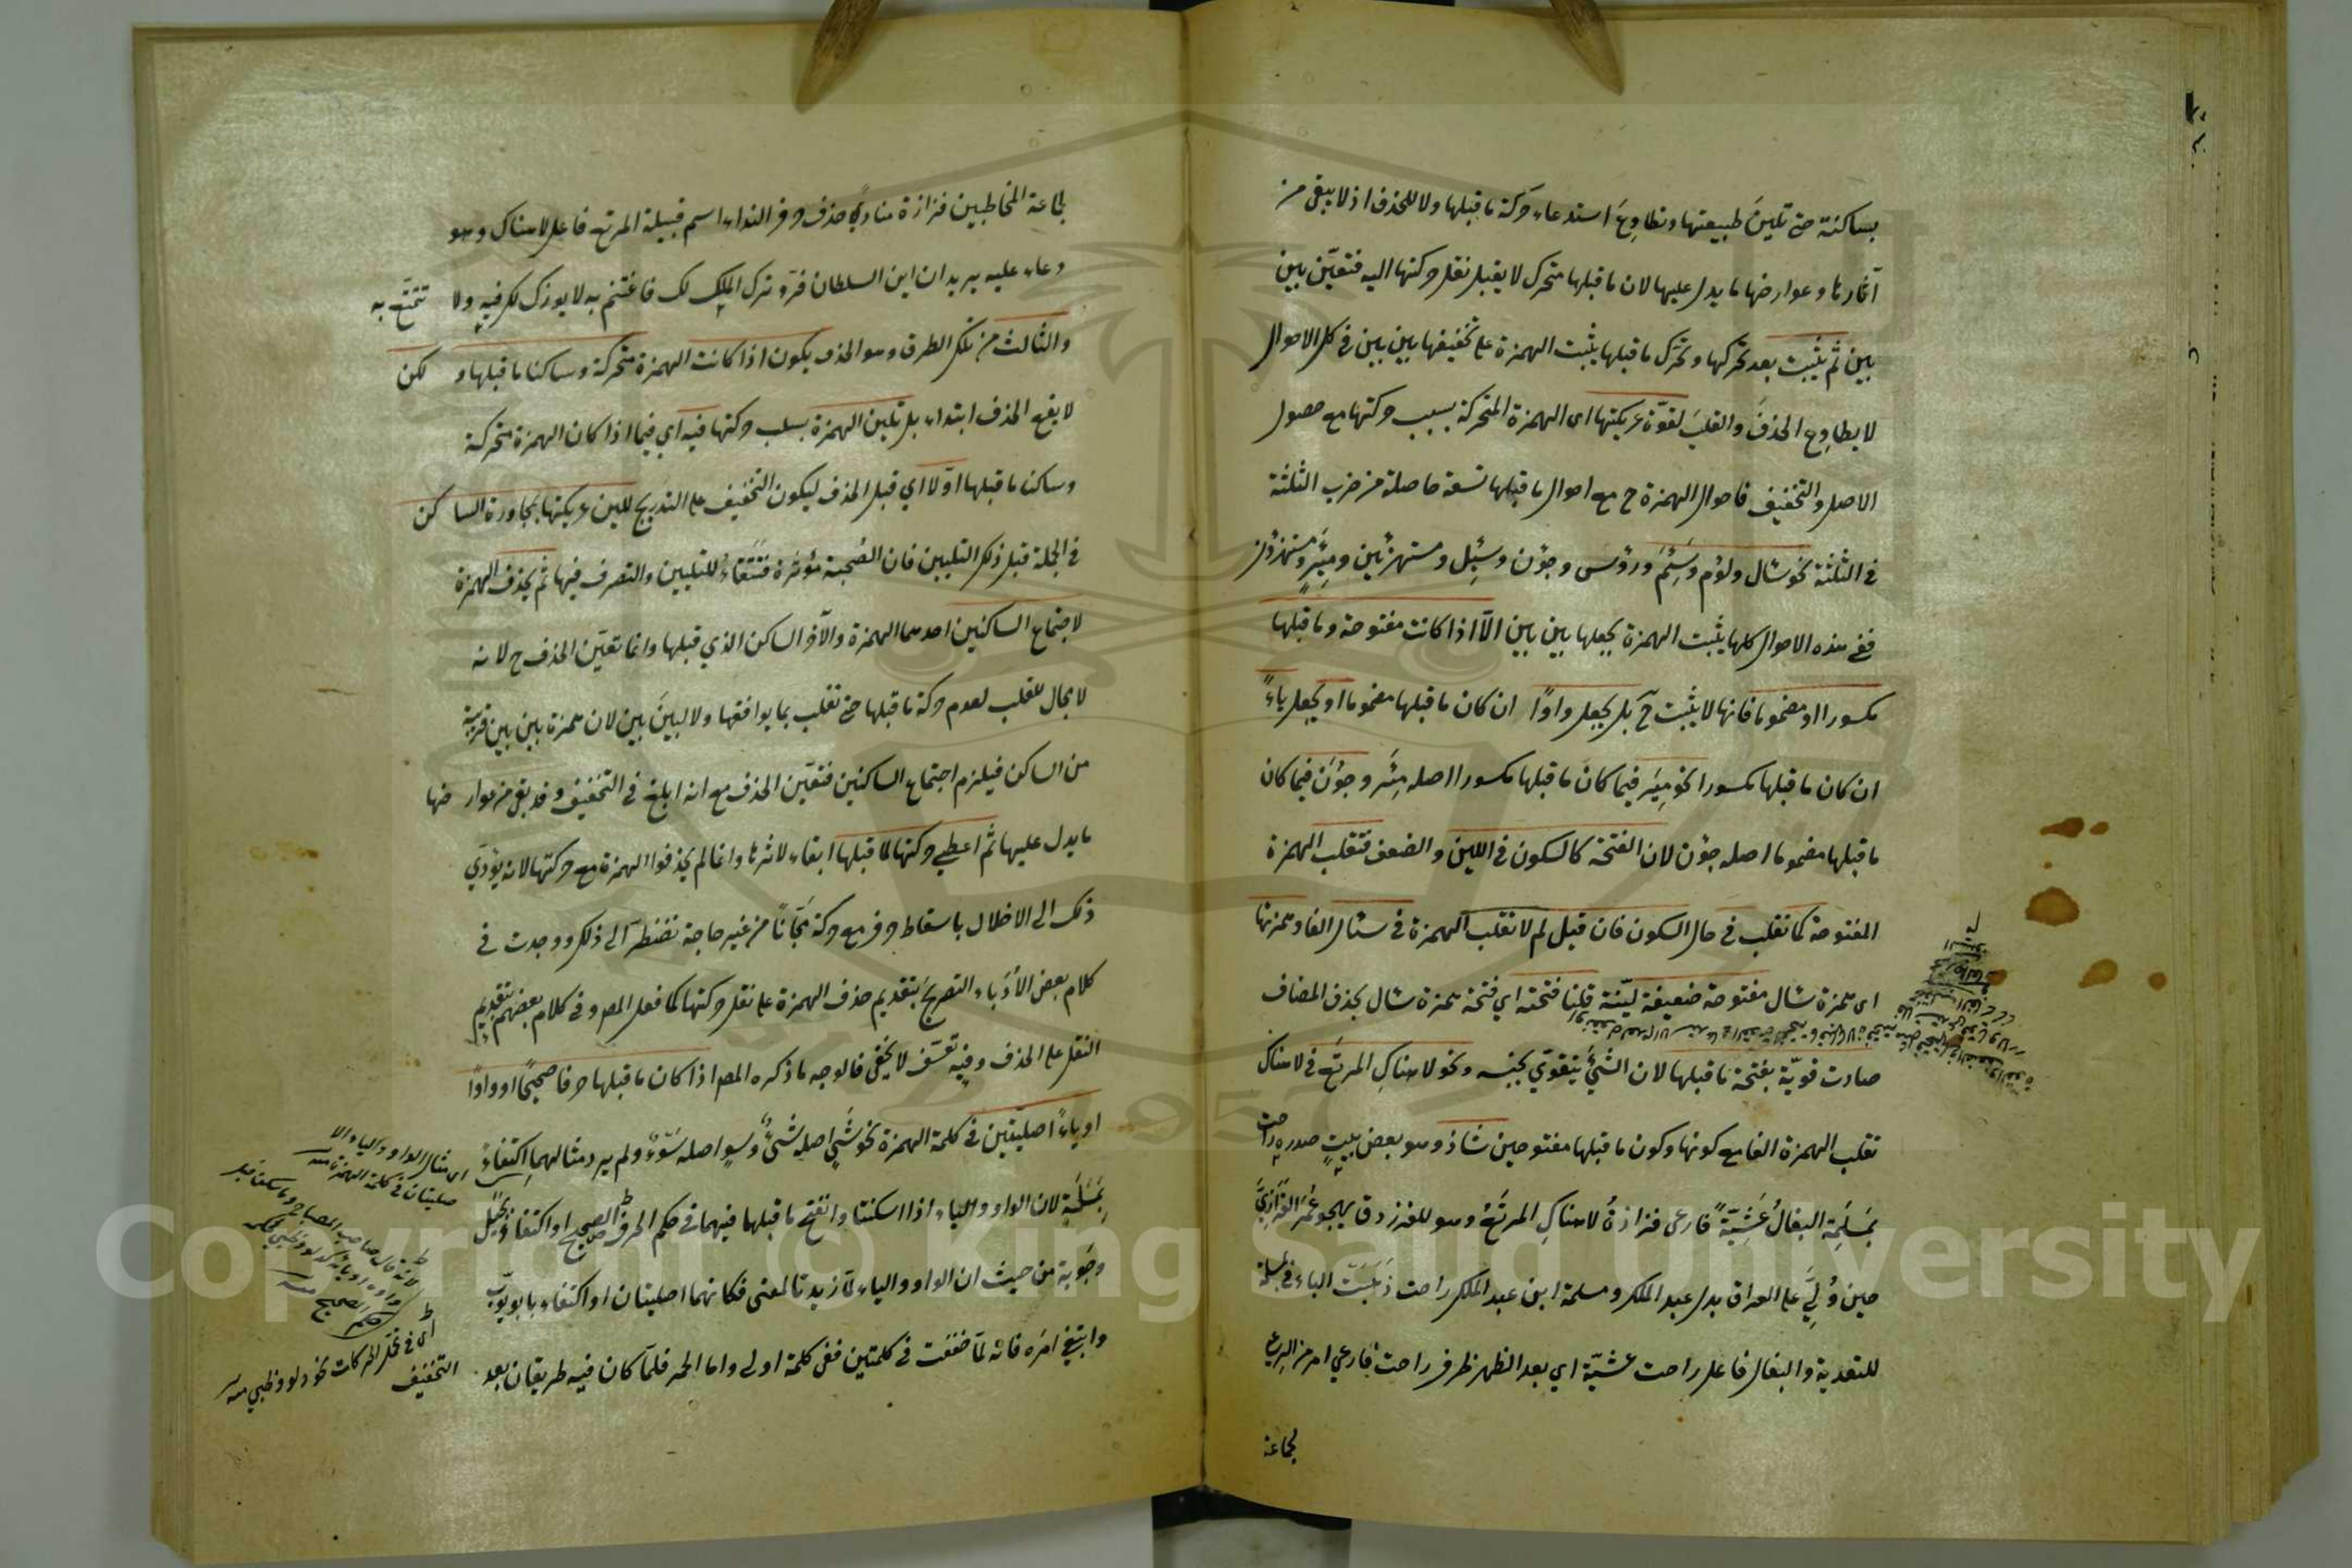 بساكنة حتى تلين طبيعتها وتطاوع استدعاء حركة ما قبلها ولا للحذف اذ لا يبقى من
آثارها وعوارضها ما يدل عليها لان ما قبلها متحرك لا يقبل نقل حركتها اليه فتعيّن بين
بين ثم يثبت بعد تحركها وتحرك ما قبلها يثبت الهمزة على تخفيفها بين بين في كل الاحوال
لا يطاوع الحذف والقلب لقوّة عريكتها اى الهمزة المتحركة بسبب حركتها مع حصول
الاصل والتخفيف فاحوال الهمزة ح مع احوال ما قبلها تسعة حاصلة من ضرب الثلثة
في الثلثة نحو سَال ولؤم وسَئِم ورؤس وجؤن وسُئِل ومستهزئين ومِئَر ومستهزؤن
ففي هذه الاحوال كلها يثبت الهمزة بجعلها بين بين الّا اذا كانت مفتوحة وما قبلها
مكسورا او مضموما فانها لا يثبت ح بل يجعل واوًا ان كان ما قبلها مضموما او يجعل ياءً
ان كان ما قبلها مكسورا نحو مِيَر فيما كان ما قبلها مكسورا اصله مِئَر وجوَن فيما كان
ما قبلها مضموما اصله جؤن لان الفتحة كالسكون في اللين والضعف فتقلب الهمزة
المفتوحة كما تقلب في حال السكون فان قيل لم لا تقلب الهمزة في سَال الفا وهمزتها
اى همزة سَال مفتوحة ضعيفة ليّنة قلنا فتحته اي فتحة همزة سَال بحذف المضاف
صارت قويّة بفتحة ما قبلها لان الشئ يتقوّي بجنسه ونحو لا هناكِ المرتع في لا هناك
تقلب الهمزة الفا مع كونها وكون ما قبلها مفتوحين شاذ وهو بعض بيت صدره راحت
بمَسلَمة البغالُ عَشِيّةً فارعى فزارة لا هناكِ المرتعُ وهو للفرزدق يهجو عُمَر الفَزَارِيَّ
حين وُلِّيَ على العراق بدل عبد الملك ومسلمة ابن عبد الملك راحت ذهبت الباء في بمسلمة
للتعدية والبغال فاعل راحت عشيّة اي بعد الظهر ظرف راحت فارعي امر من الرعي
لجماعة
لجماعة المخاطبين فزارة منادىً حذف حرف النداء اسم قبيلة المرتع فاعل لا هناك وهو
دعاء عليه يريد ان ابن السلطان فرّ وترك الملك لك فاغتنم به لا بورك لك فيه ولا تتمتّع به
والثالث من تلك الطرق وهو الحذف يكون اذا كانت الهمزة متحركة وساكنا ما قبلها ولكن
لا يقع الحذف ابتداء بل تلين الهمزة بسلب حركتها فيه اي فيما اذا كان الهمزة متحركة
وساكنا ما قبلها اوّلا اي قبل الحذف ليكون التخفيف على التدريج للين عريكتها بمجاورة الساكن
في الجملة قبل ذلك التليين فان الصُحبة مؤثرة فتتقاءُ للتليين والتصرف فيها ثم يحذف الهمزة
لاجتماع الساكنين احدهما الهمزة والآخر الساكن الذي قبلها وانما تعيّن الحذف ح لانه
لا مجال للقلب لعدم حركة ما قبلها حتى تقلب بما يوافقها ولا لبينَ بين لان همزة بين بين قريبة
من الساكن فيلزم اجتماع الساكنين فتعيّن الحذف مع انه ابلغ في التخفيف وقد بقي من عوارضها
ما يدل عليها ثم اعطي حركتها لما قبلها ابقاء لاثرها وانما لم يحذفوا الهمزة مع حركتها لانه يؤدّي
ذلك الى الاخلال باسقاط حرف مع حركة مجّانًا من غير حاجة تضطرّ الى ذلك ووجدت في
كلام بعض الأدباء التصريح بتقديم حذف الهمزة على نقل حركتها كما فعل المصـ وفي كلام بعضهم بتقديم
النقل على الحذف وفيه تعسّف لا يخفى فالوجه ما ذكره المصـ اذا كان ما قبلها حرفا صحيحًا او واوًا
او ياءً اصليّتين في كلمة الهمزة نحو شَيٍ اصله شئٌ وسوٍ اصله سَوْءٌ ولم يرد مثالهما اكتفاءً
بِمَسَلَةٍ لان الواو والياء اذا اسكنتا وانفتح ما قبلها فيهما في حكم الحرف الصحيح او اكتفاء بجَيَل
وجَوَبة من حيث ان الواو والياء لمّا زيدتا لمعنى فكانهما اصليتان او اكتفاء بابويّوب
وابتغي امَره فانه لمّا خففت في كلمتين ففي كلمة اولى واما الحمر فلمّا كان فيه طريقان بعد
اى مثال الواو والياء الا
صليتان في كلمة الهمزة منه
لانه قال صاحب المصباح وما سكن قبل
واوه او يائه كدلو وظبي في حكم
حكم الصحيح منه
اى في تحمل الحركات نحو دلو وظبي منه
التخفيف